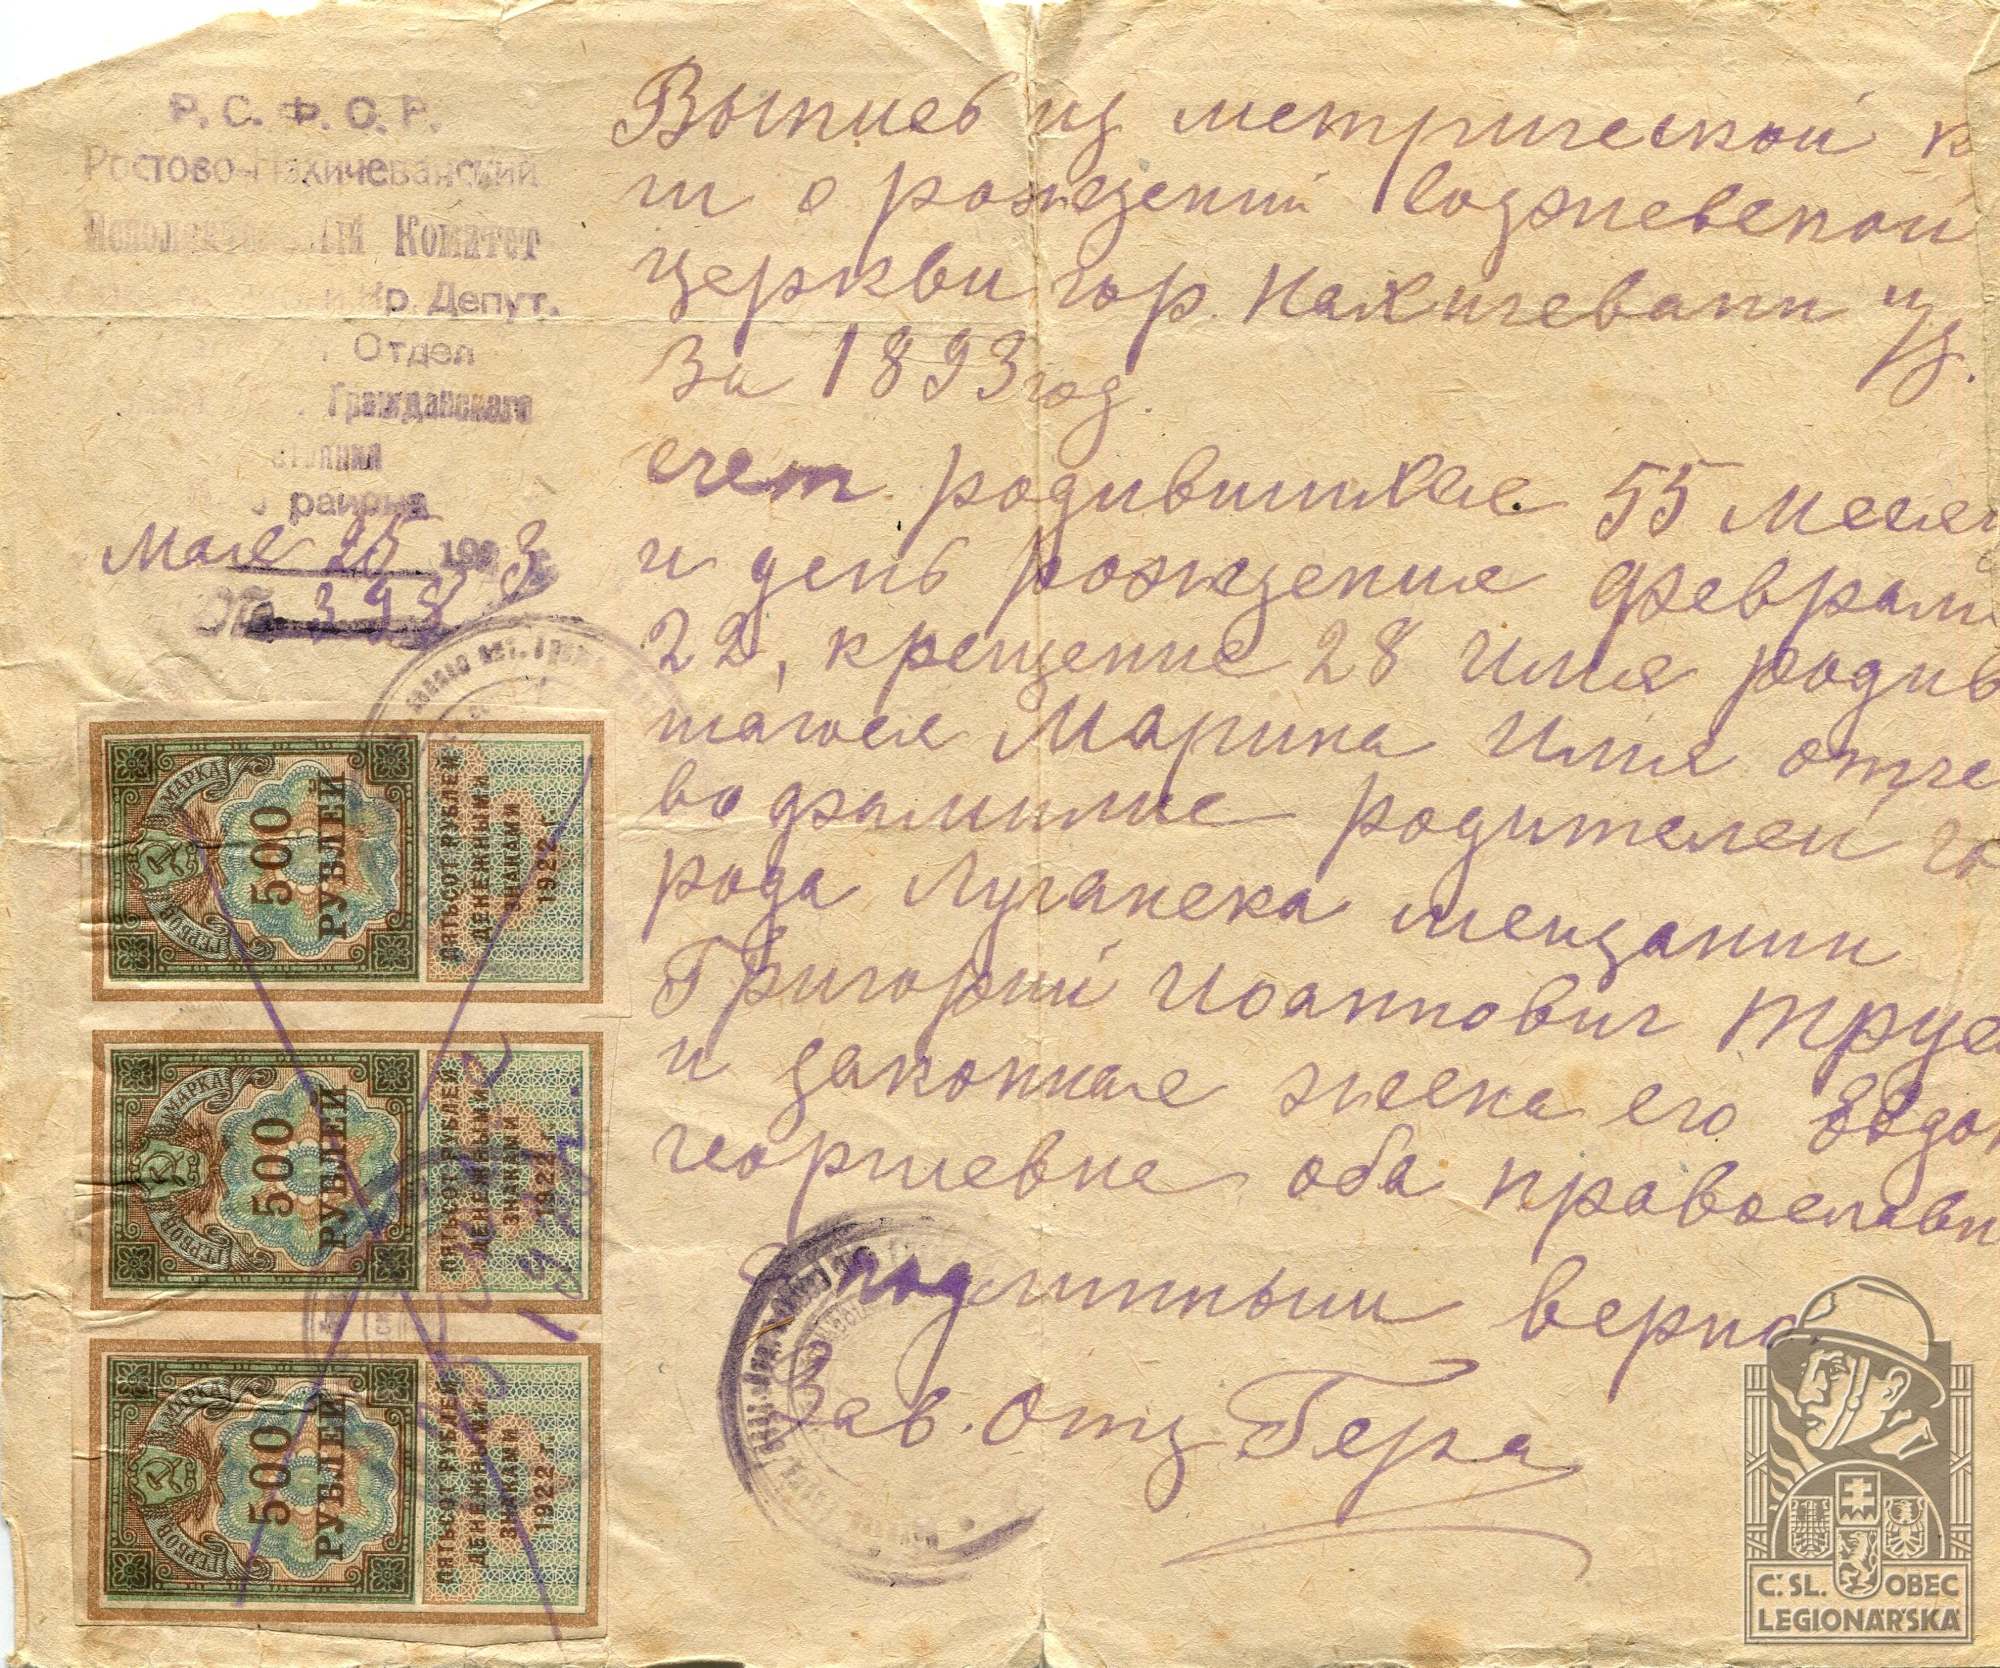 Р.С.Ф.С.Р.
Ростово-Нахичеванский
Исполнительный Комитет
и Кр. Депут.
Отдел
Гражданского
района
Мая 25 1923
№ 398
Выпись из метрической к
ги о рождений
церкви гор. Нахичевани н/Д.
за 1893 год.
счет родившихся 55 меся
и день рождения Феврал
22, крещение 28 Имя родив
шагося Марина Имя отче
во фамилие родителей го
рода Луганска мещанин
Григорий Иоаннович
и законная жена его Евдо
георгиевна оба православн
С подлинным верно
Зав. Отд
ГЕРБОВ. МАРКА
500
РУБЛЕЙ
ПЯТЬСОТ РУБЛЕЙ
ДЕНЕЖНЫМИ
ЗНАКАМИ
1922 г.
ГЕРБОВ. МАРКА
500
РУБЛЕЙ
ПЯТЬСОТ РУБЛЕЙ
ДЕНЕЖНЫМИ
ЗНАКАМИ
1922 г.
ГЕРБОВ. МАРКА
500
РУБЛЕЙ
ПЯТЬСОТ РУБЛЕЙ
ДЕНЕЖНЫМИ
ЗНАКАМИ
1922 г.
Č. SL. OBEC
LEGIONÁŘSKÁ